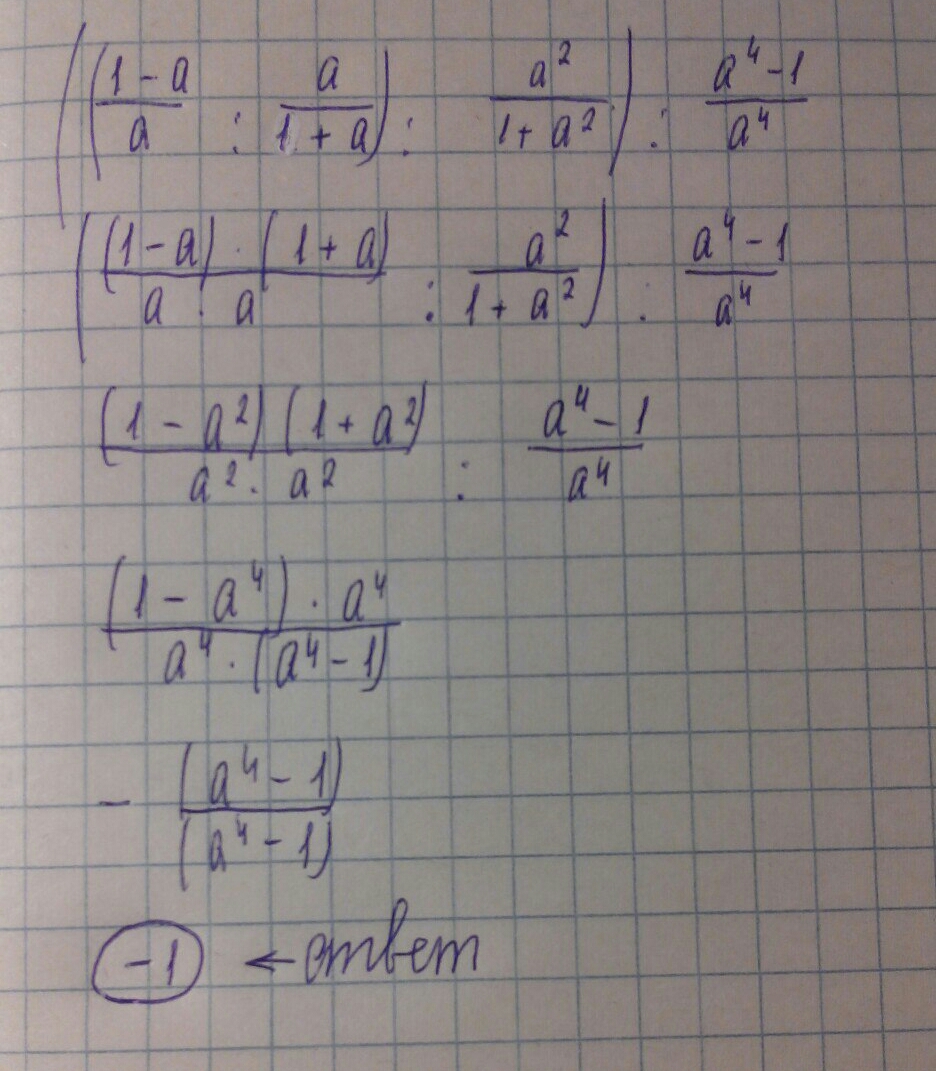 ((1-a/a : a/1+a) : a²/1+a²) : a⁴-1/a⁴
((1-a)·(1+a)/a·a : a²/1+a²) : a⁴-1/a⁴
(1-a²)(1+a²)/a²·a² : a⁴-1/a⁴
(1-a⁴)·a⁴/a⁴·(a⁴-1)
- (a⁴-1)/(a⁴-1)
-1 ← ответ